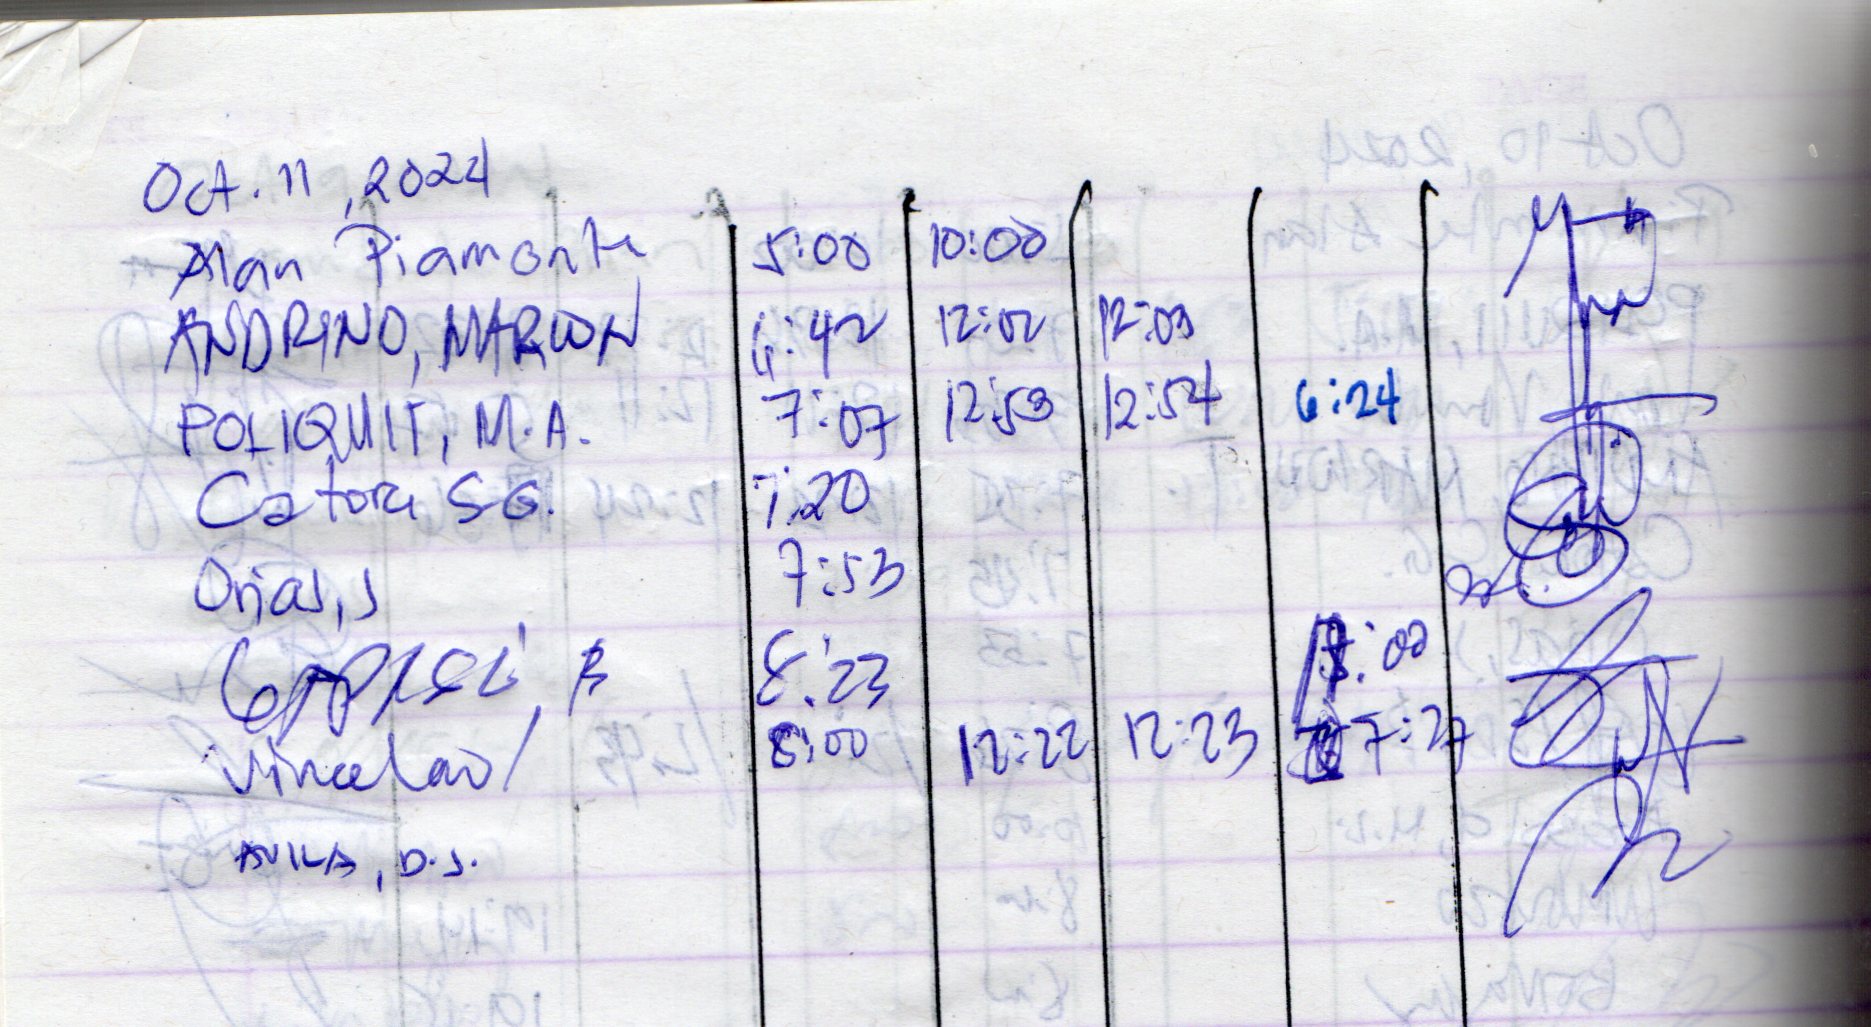 Oct. 11, 2024
Alan Piamonte 5:00 10:00
ANDRINO, MARLON 6:42 12:02 12:03
POLIQUIT, M.A. 7:07 12:53 12:54 6:24
Catora S.G. 7:20
Orias, J 7:53
B 8:23 :00
8:00 12:22 12:23 7:27
AVILA, D.J.